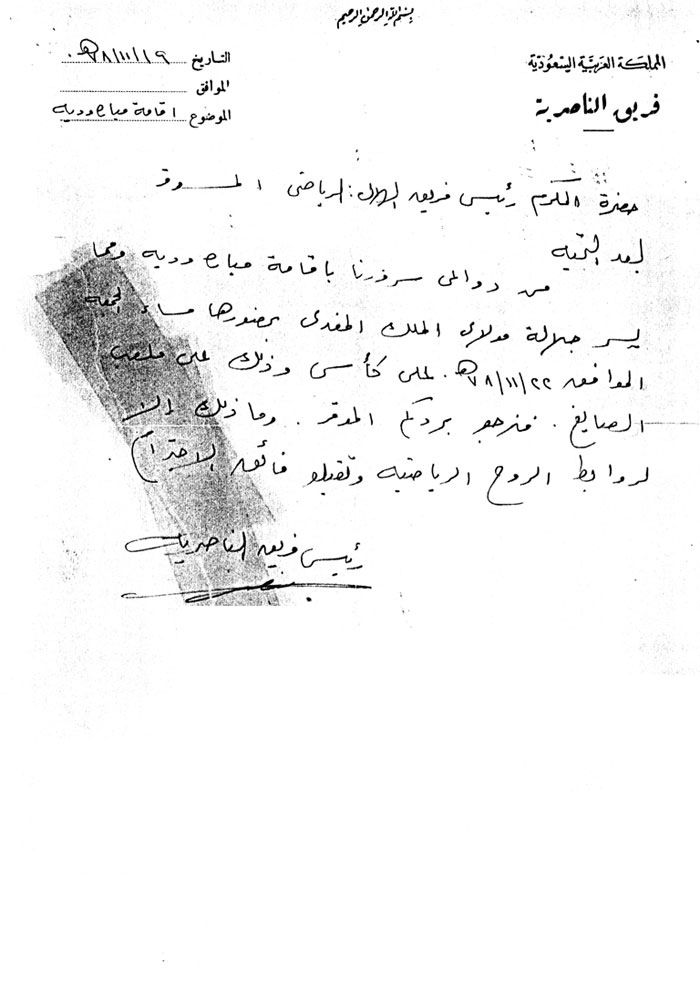 بسم الله الرحمن الرحيم
المملكة العربية السعودية
فريق الناصرية
التاريخ ١٩/١١/٧٨هـ
الموافق
الموضوع اقامة مباراه وديه
حضرة المكرم رئيس فريق الهلال الرياضى الموقر
بعد التحيه
من دواعى سرورنا باقامة مباراه وديه ومما
يسر جلالة مولاى الملك المفدى بحضورها مساء الجمعه
الموافق ٢٢/١١/٧٨هـ على كأس وذلك على ملعب
الصايغ . فنرجو بردكم الموقر . وما ذلك إلا
لروابط الروح الرياضيه وتقبلو فائق الاحترام .
رئيس فريق الناصرية